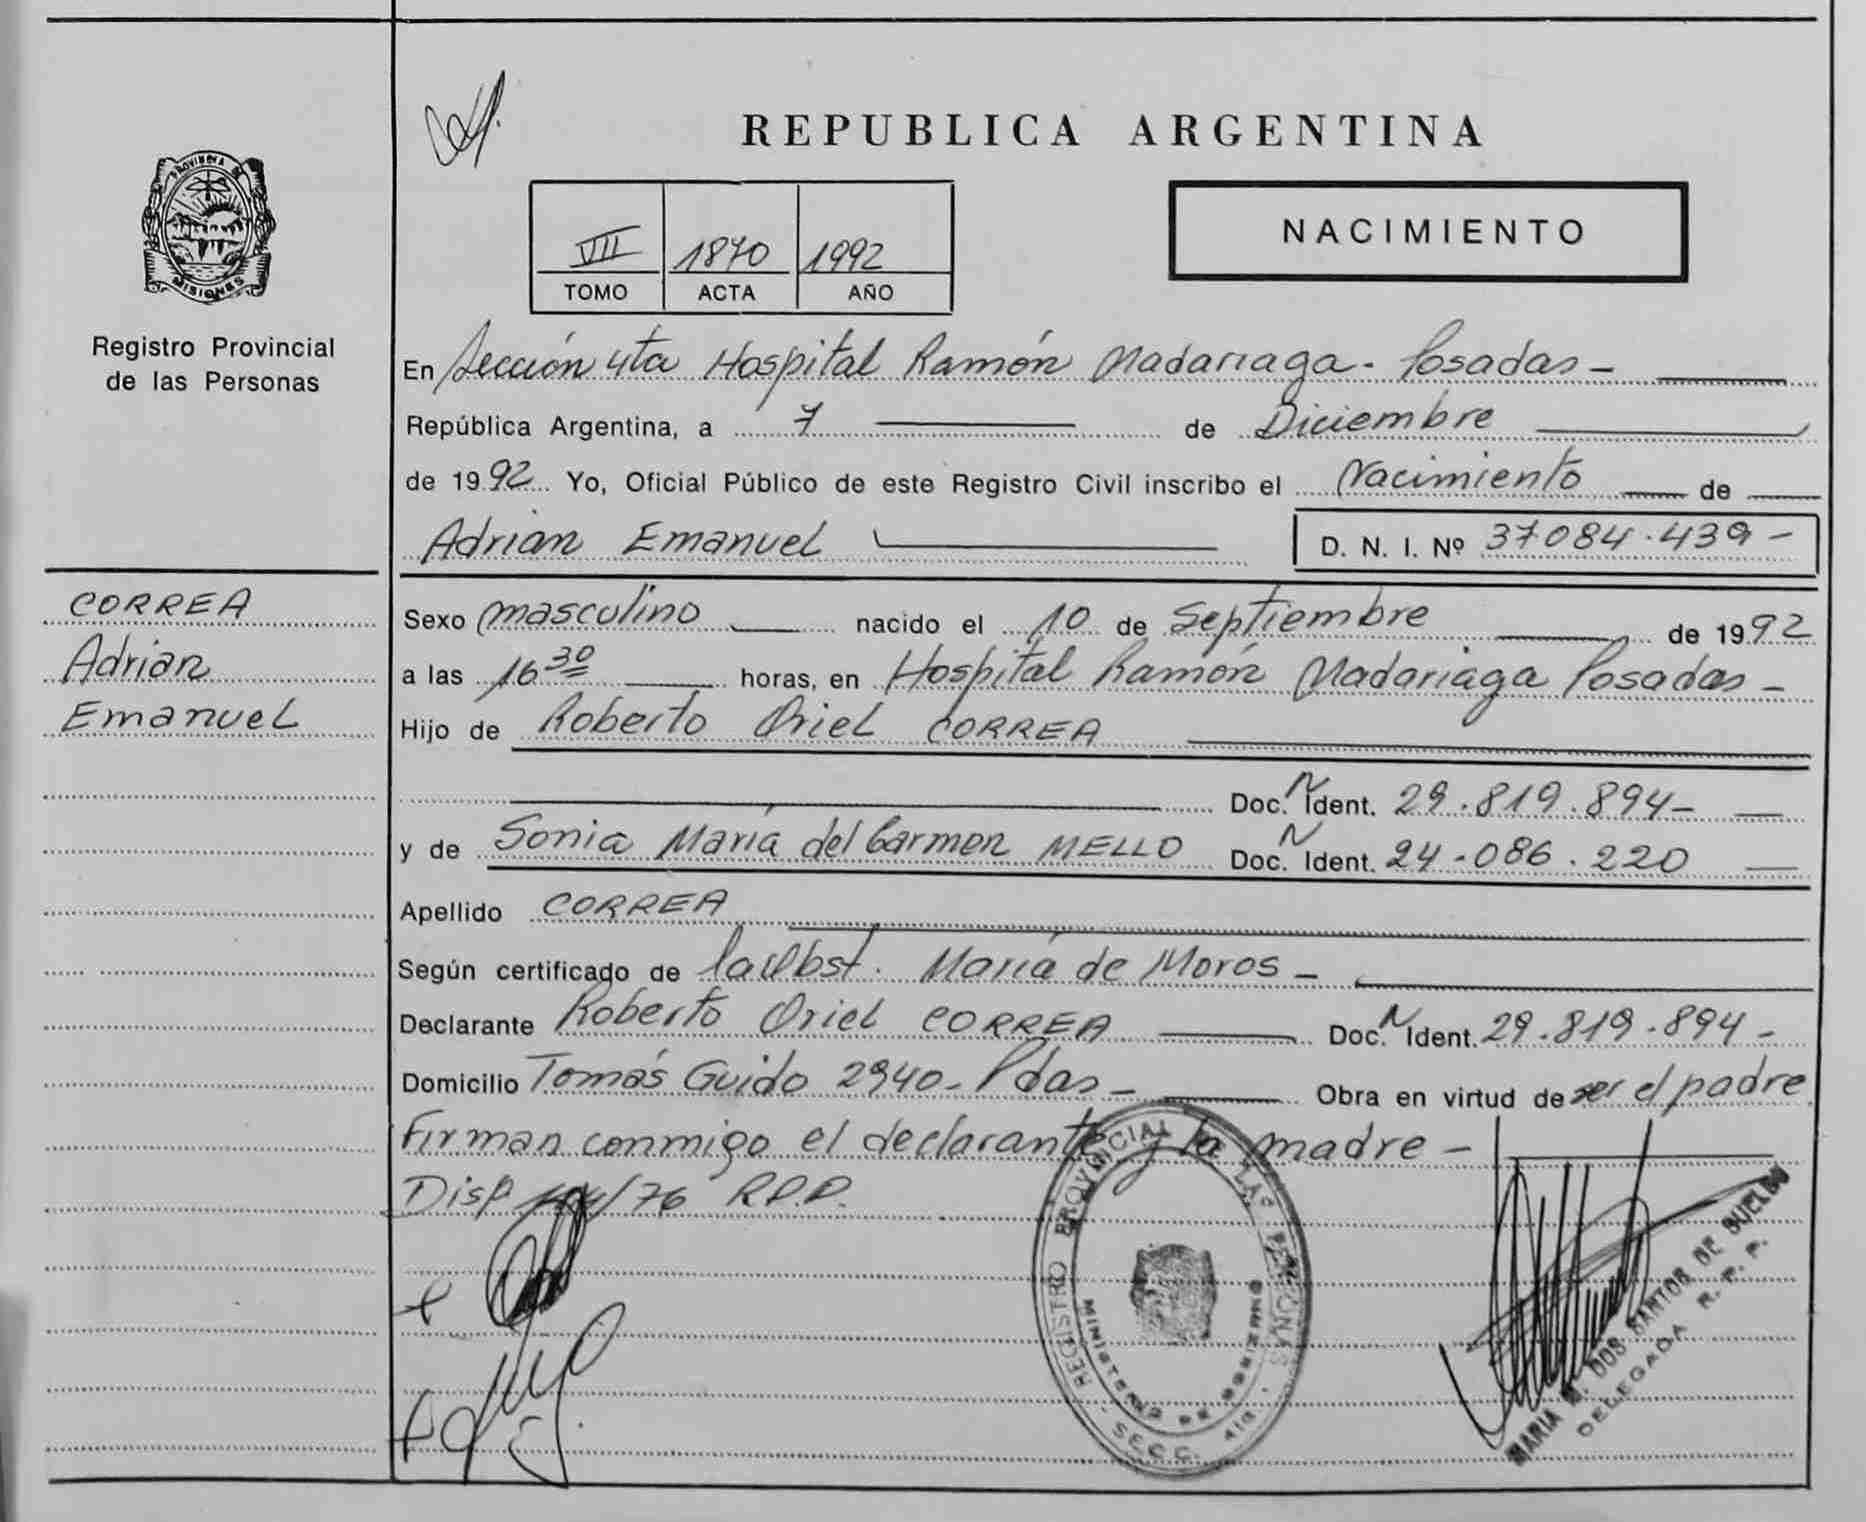 REPUBLICA ARGENTINA
PROVINCIA DE
MISIONES
Registro Provincial
de las Personas
VII 1870 1992
TOMO ACTA AÑO
NACIMIENTO
En Sección 4ta Hospital Ramón Madariaga - Posadas -
República Argentina, a 7 de Diciembre
de 1992 Yo, Oficial Público de este Registro Civil inscribo el Nacimiento de
Adrian Emanuel D. N. I. Nº 37084.439 -
CORREA
Adrian
Emanuel
Sexo masculino nacido el 10 de Septiembre de 1992
a las 16 30 horas, en Hospital Ramón Madariaga Posadas -
Hijo de Roberto Oriel CORREA
Doc. N Ident. 29.819.894 -
y de Sonia María del Carmen MELLO Doc. N Ident. 24.086.220
Apellido CORREA
Según certificado de la Obst. María de Moros -
Declarante Roberto Oriel CORREA Doc. N Ident. 29.819.894 -
Domicilio Tomás Guido 2940 - Pdas - Obra en virtud de ser el padre
Firman conmigo el declarante y la madre -
Disp. /76 R.P.P.
REGISTRO PROVINCIAL DE LAS PERSONAS
MINISTERIO DE GOBIERNO
SECC. 4ta
MARIA DOS SANTOS DE BUELBU
DELEGADA R. P. P.